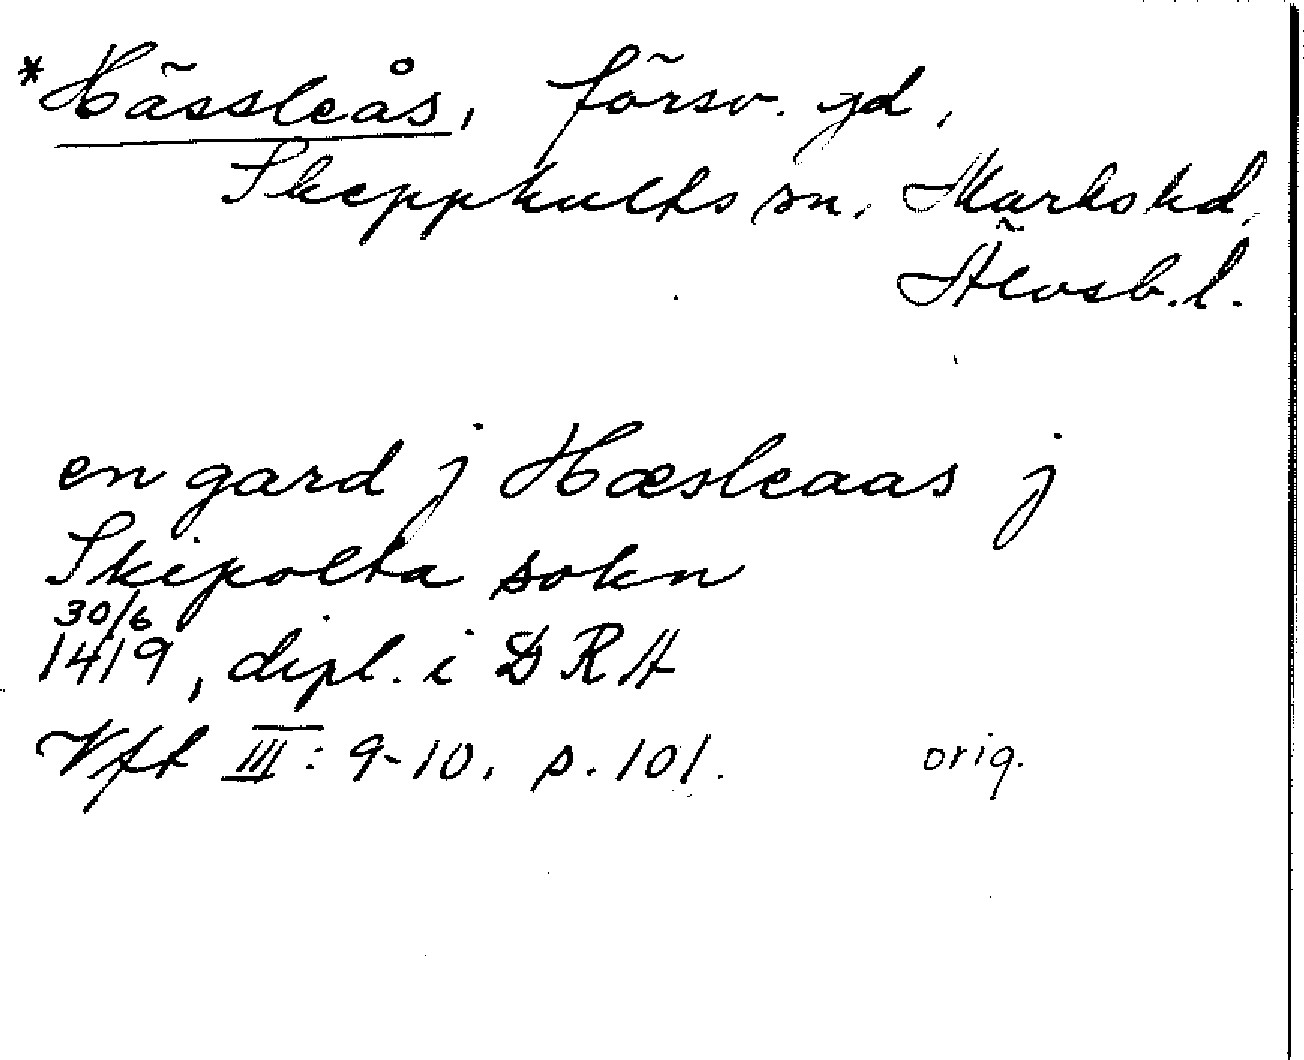 *Hässleås, försv. gd,
Skepphults sn, Marks hd,
Älvsb. l.
en gard j Hæsleaas j
Skipolta sokn
30/6
1419, dipl. i DRA
Vft III: 9-10. p. 101. orig.